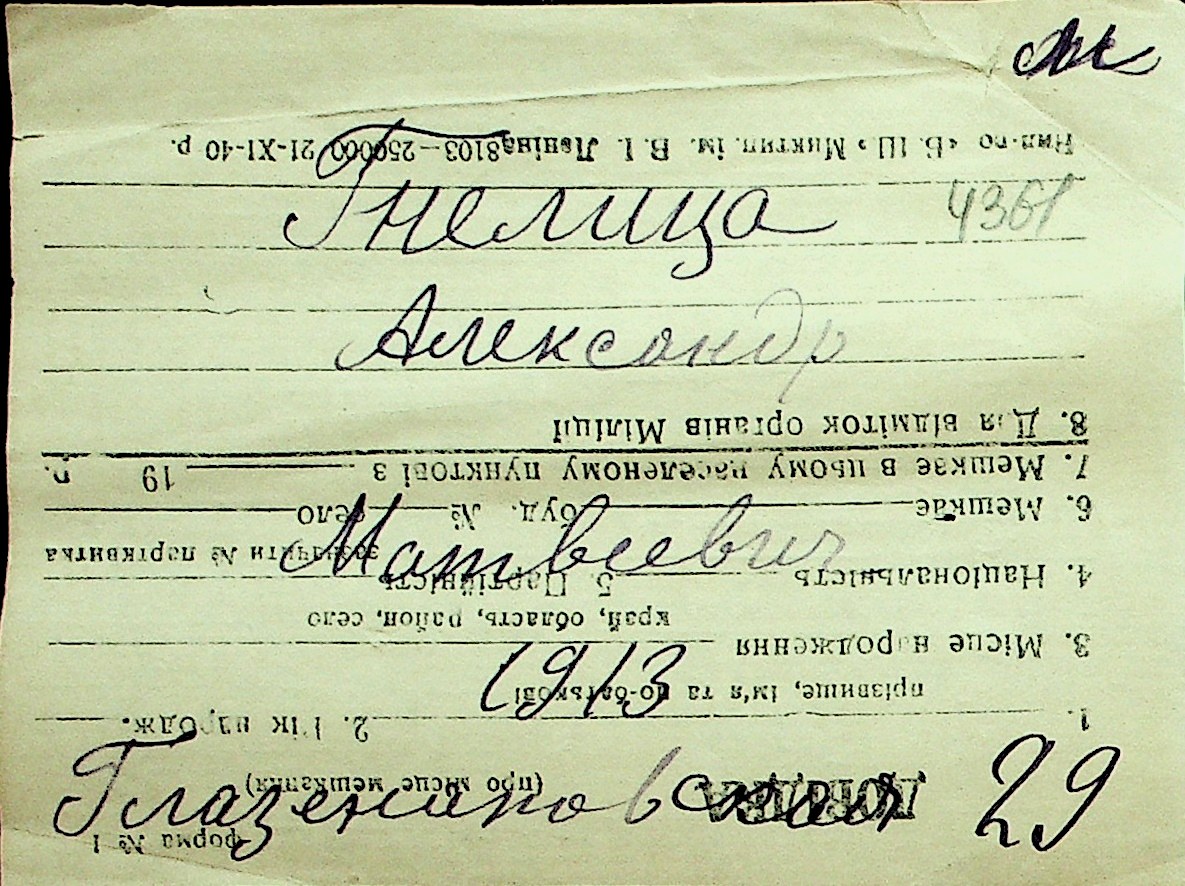 4361
Гнелица
Александр
Матвеевич
1913
29
форма № 1
ДОВІДКА
(про місце мешкання)
1. 2. Рік народж.
прізвище, ім'я та по-батькові
3. Місце народження
край, область, район, село
4. Національність 5. Партійність
зазначити № партквитка
6. Мешкає буд. № село
7. Мешкає в цьому населеному пунктові з 19 р.
8. Для відміток органів Міліції
8103—250000 21-XI-40 р.